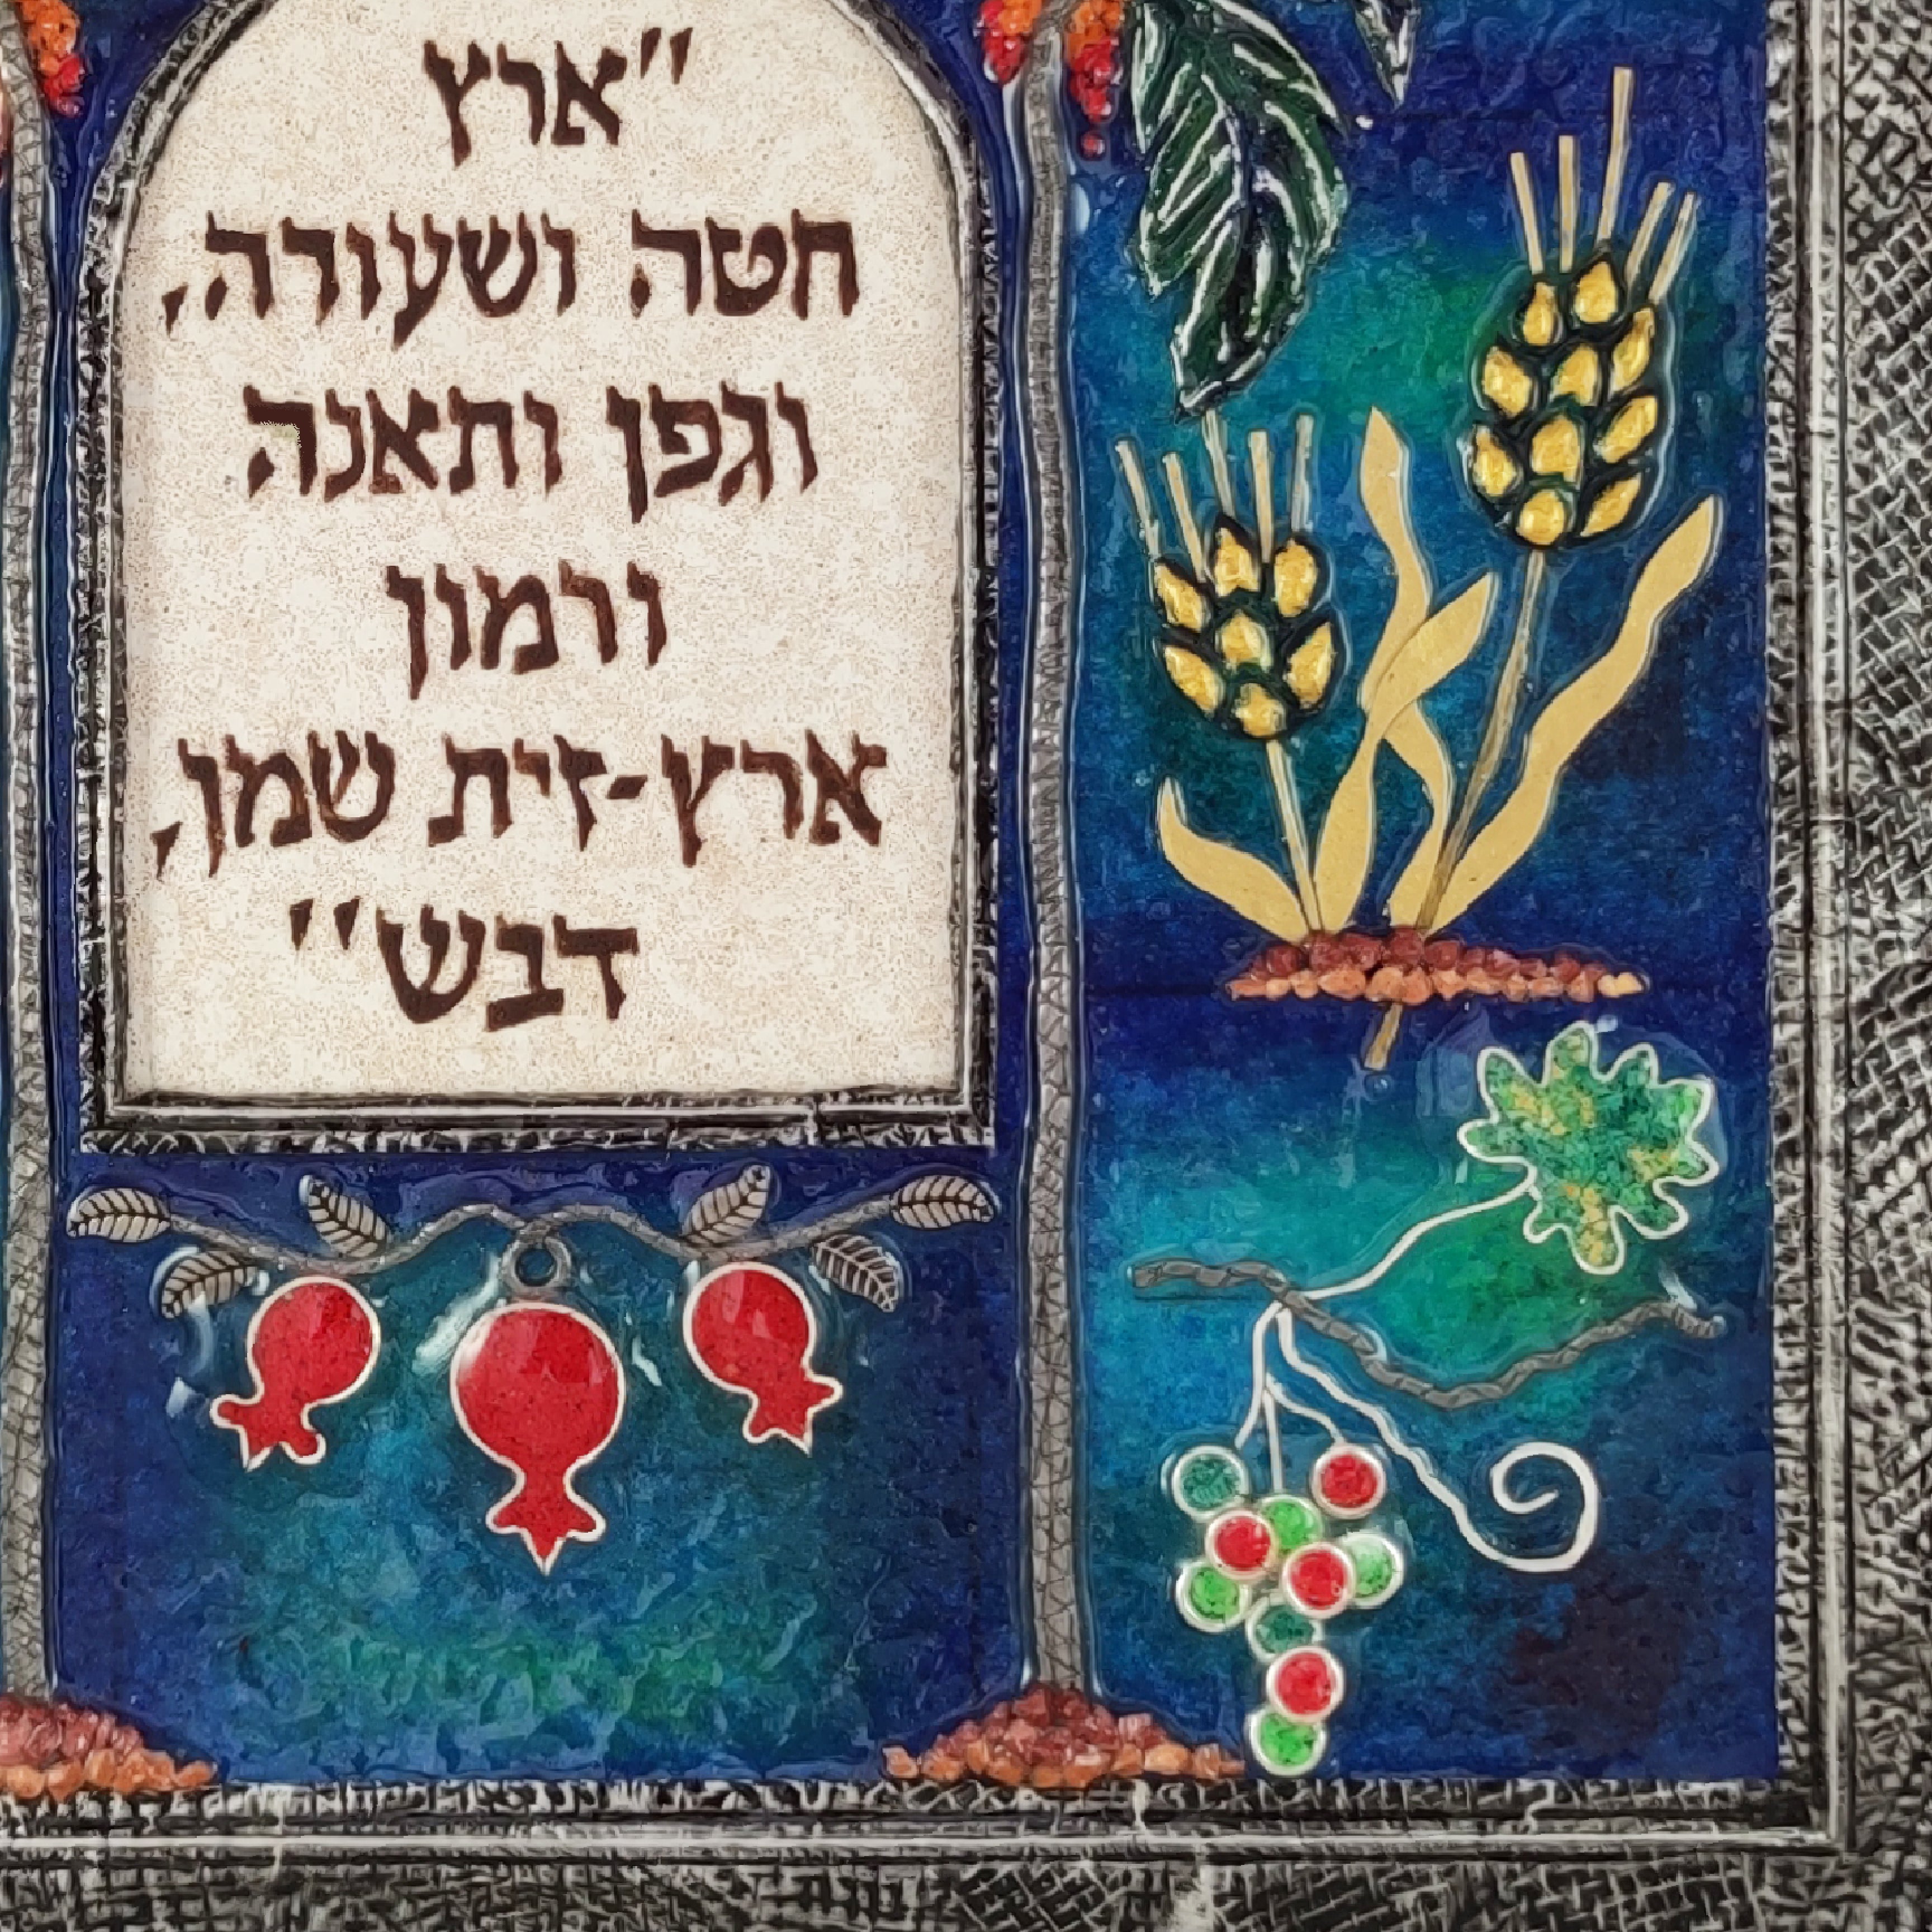 "ארץ
חטה ושעורה,
וגפן ותאנה
ורמון
ארץ-זית שמן,
דבש''